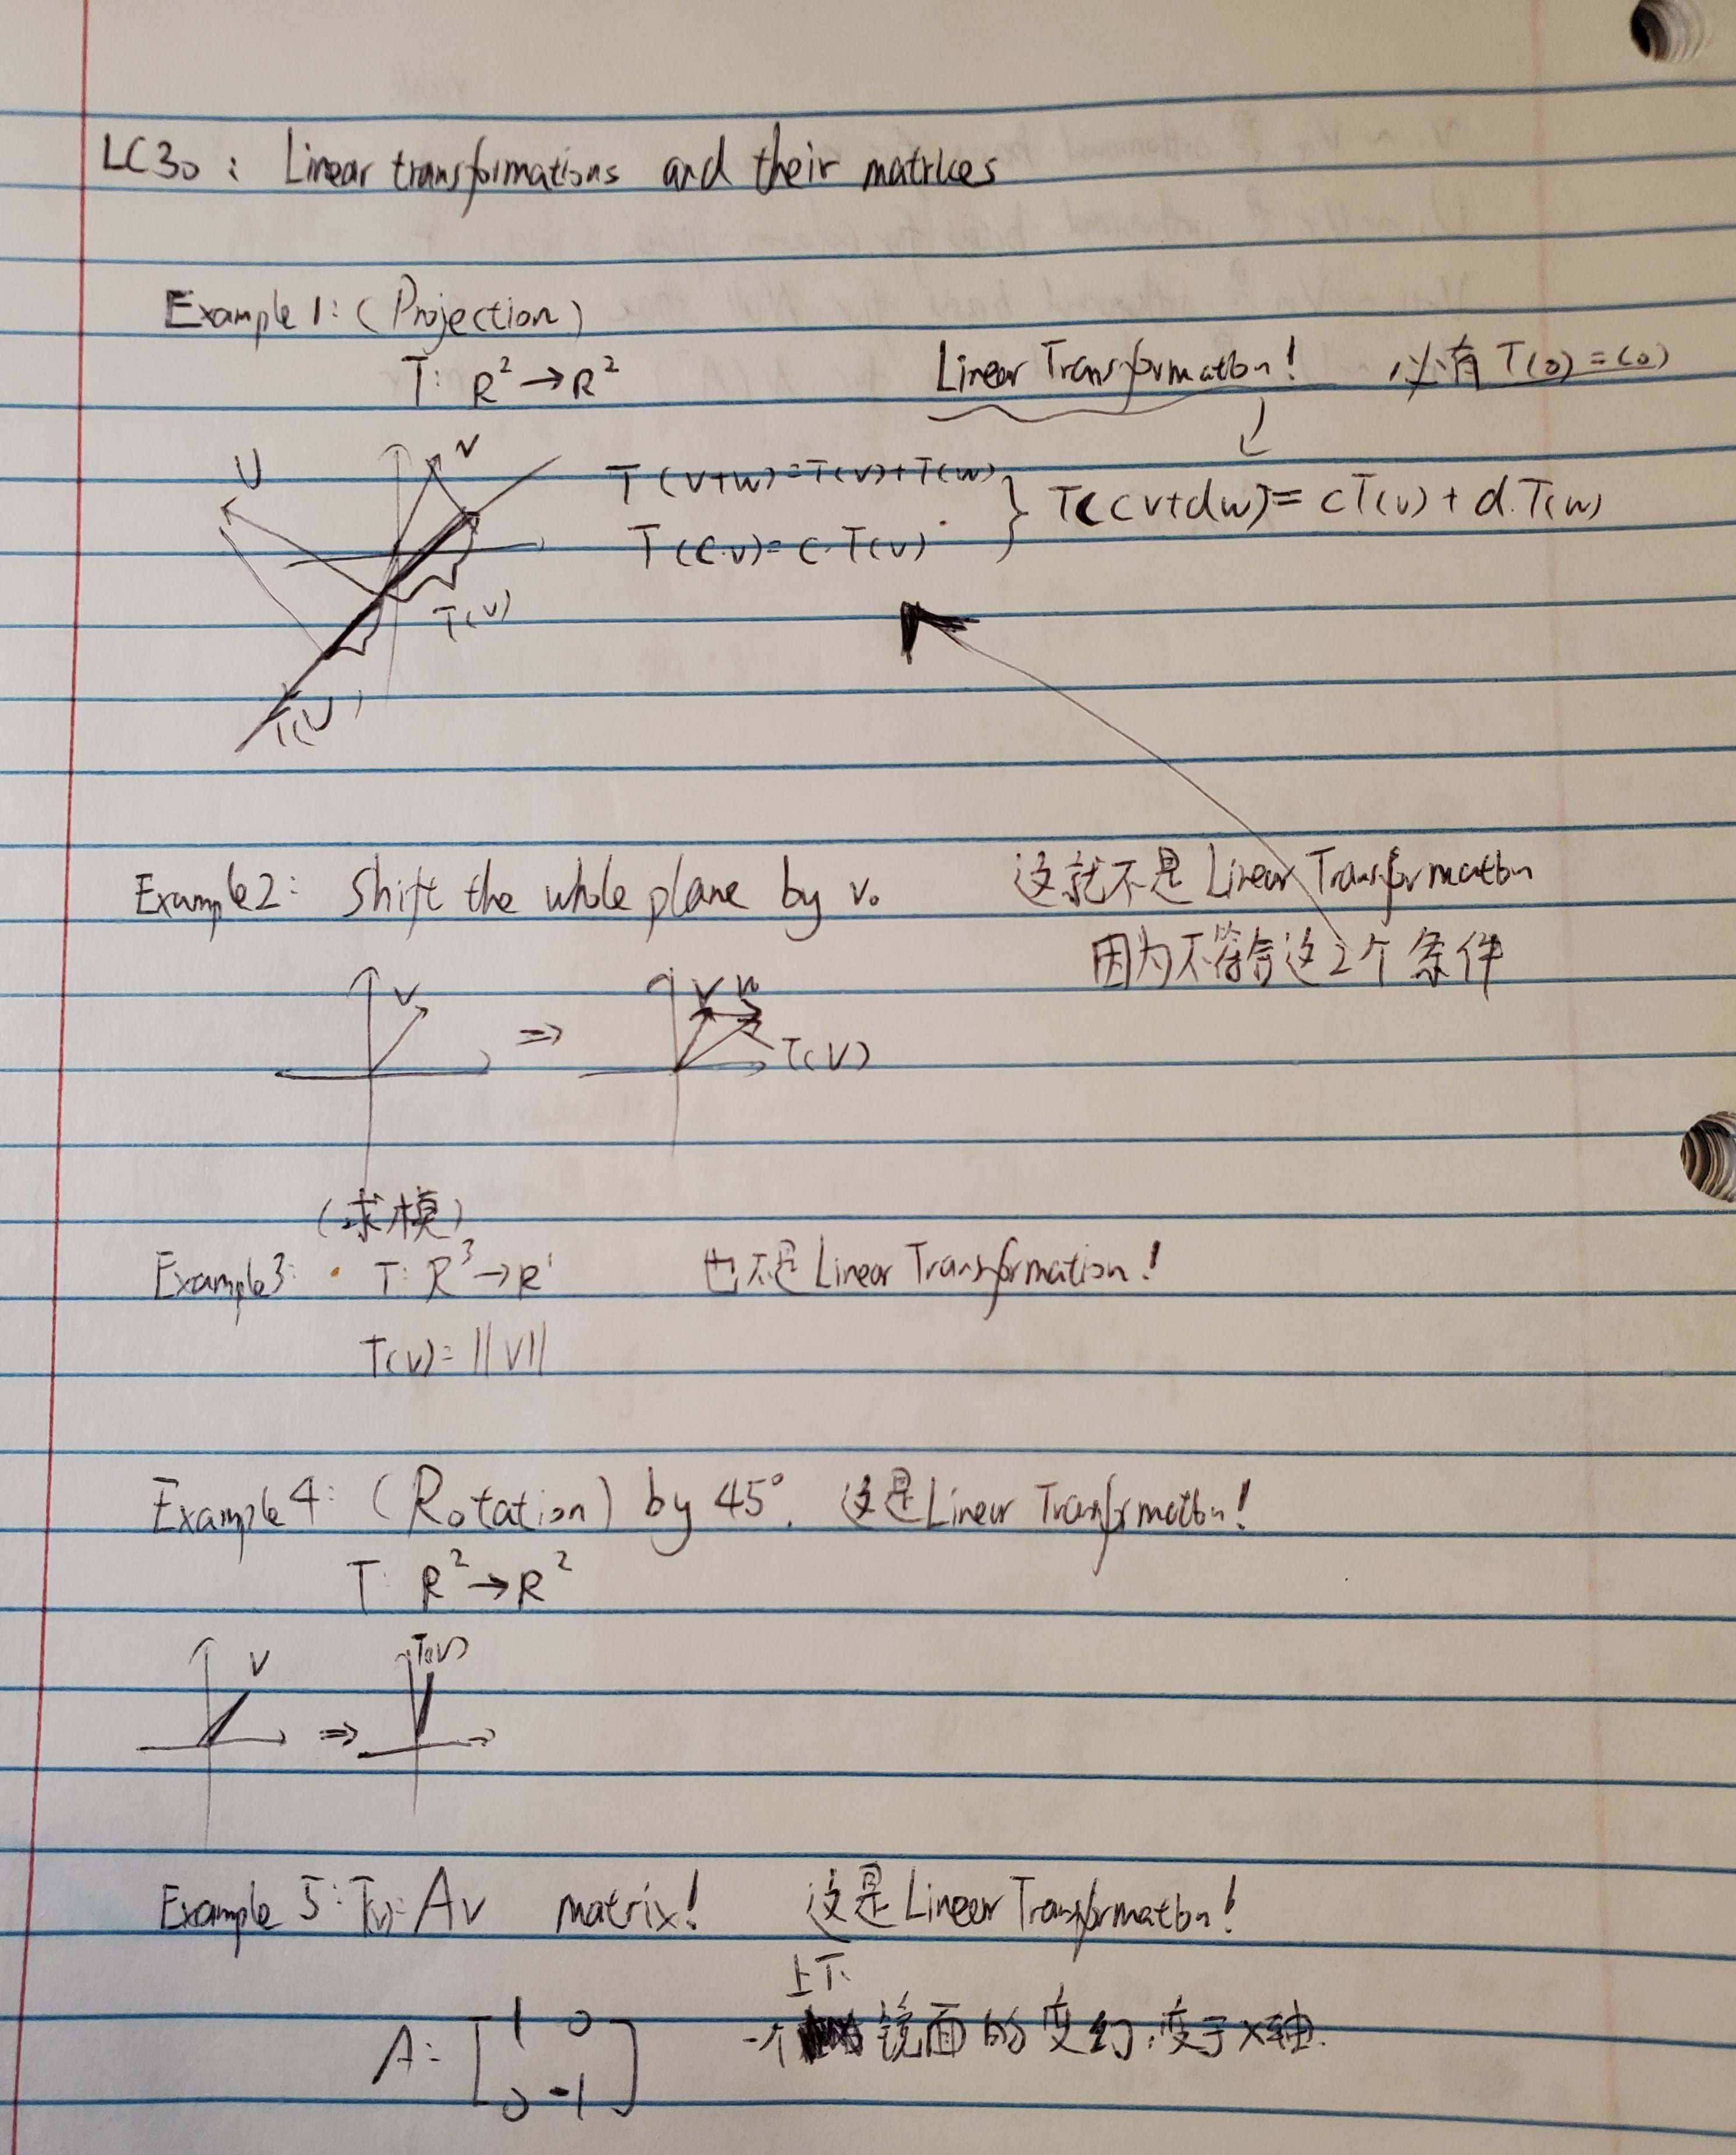 LC30: Linear transformations and their matrices
Example 1: (Projection)
T: R² → R²
Linear Transformation! 必有 T(0)=(0)
U
v
T(v+w)=T(v)+T(w)
T(c·v)=c·T(v)
} T(cv+dw)=cT(v)+d.T(w)
T(v)
T(U)
Example 2: Shift the whole plane by v. 这就不是 Linear Transformation
因为不符合这2个条件
v
⇒
v
T(v)
(求模)
Example 3: T: R³ → R¹ 也不是 Linear Transformation!
T(v)=||v||
Example 4: (Rotation) by 45°. 这是 Linear Transformation!
T: R² → R²
v
⇒
T(v)
Example 5: T(v)=Av matrix! 这是 Linear Transformation!
上下
A=[1 0
0 -1]
一个镜面的变幻,变于x轴.